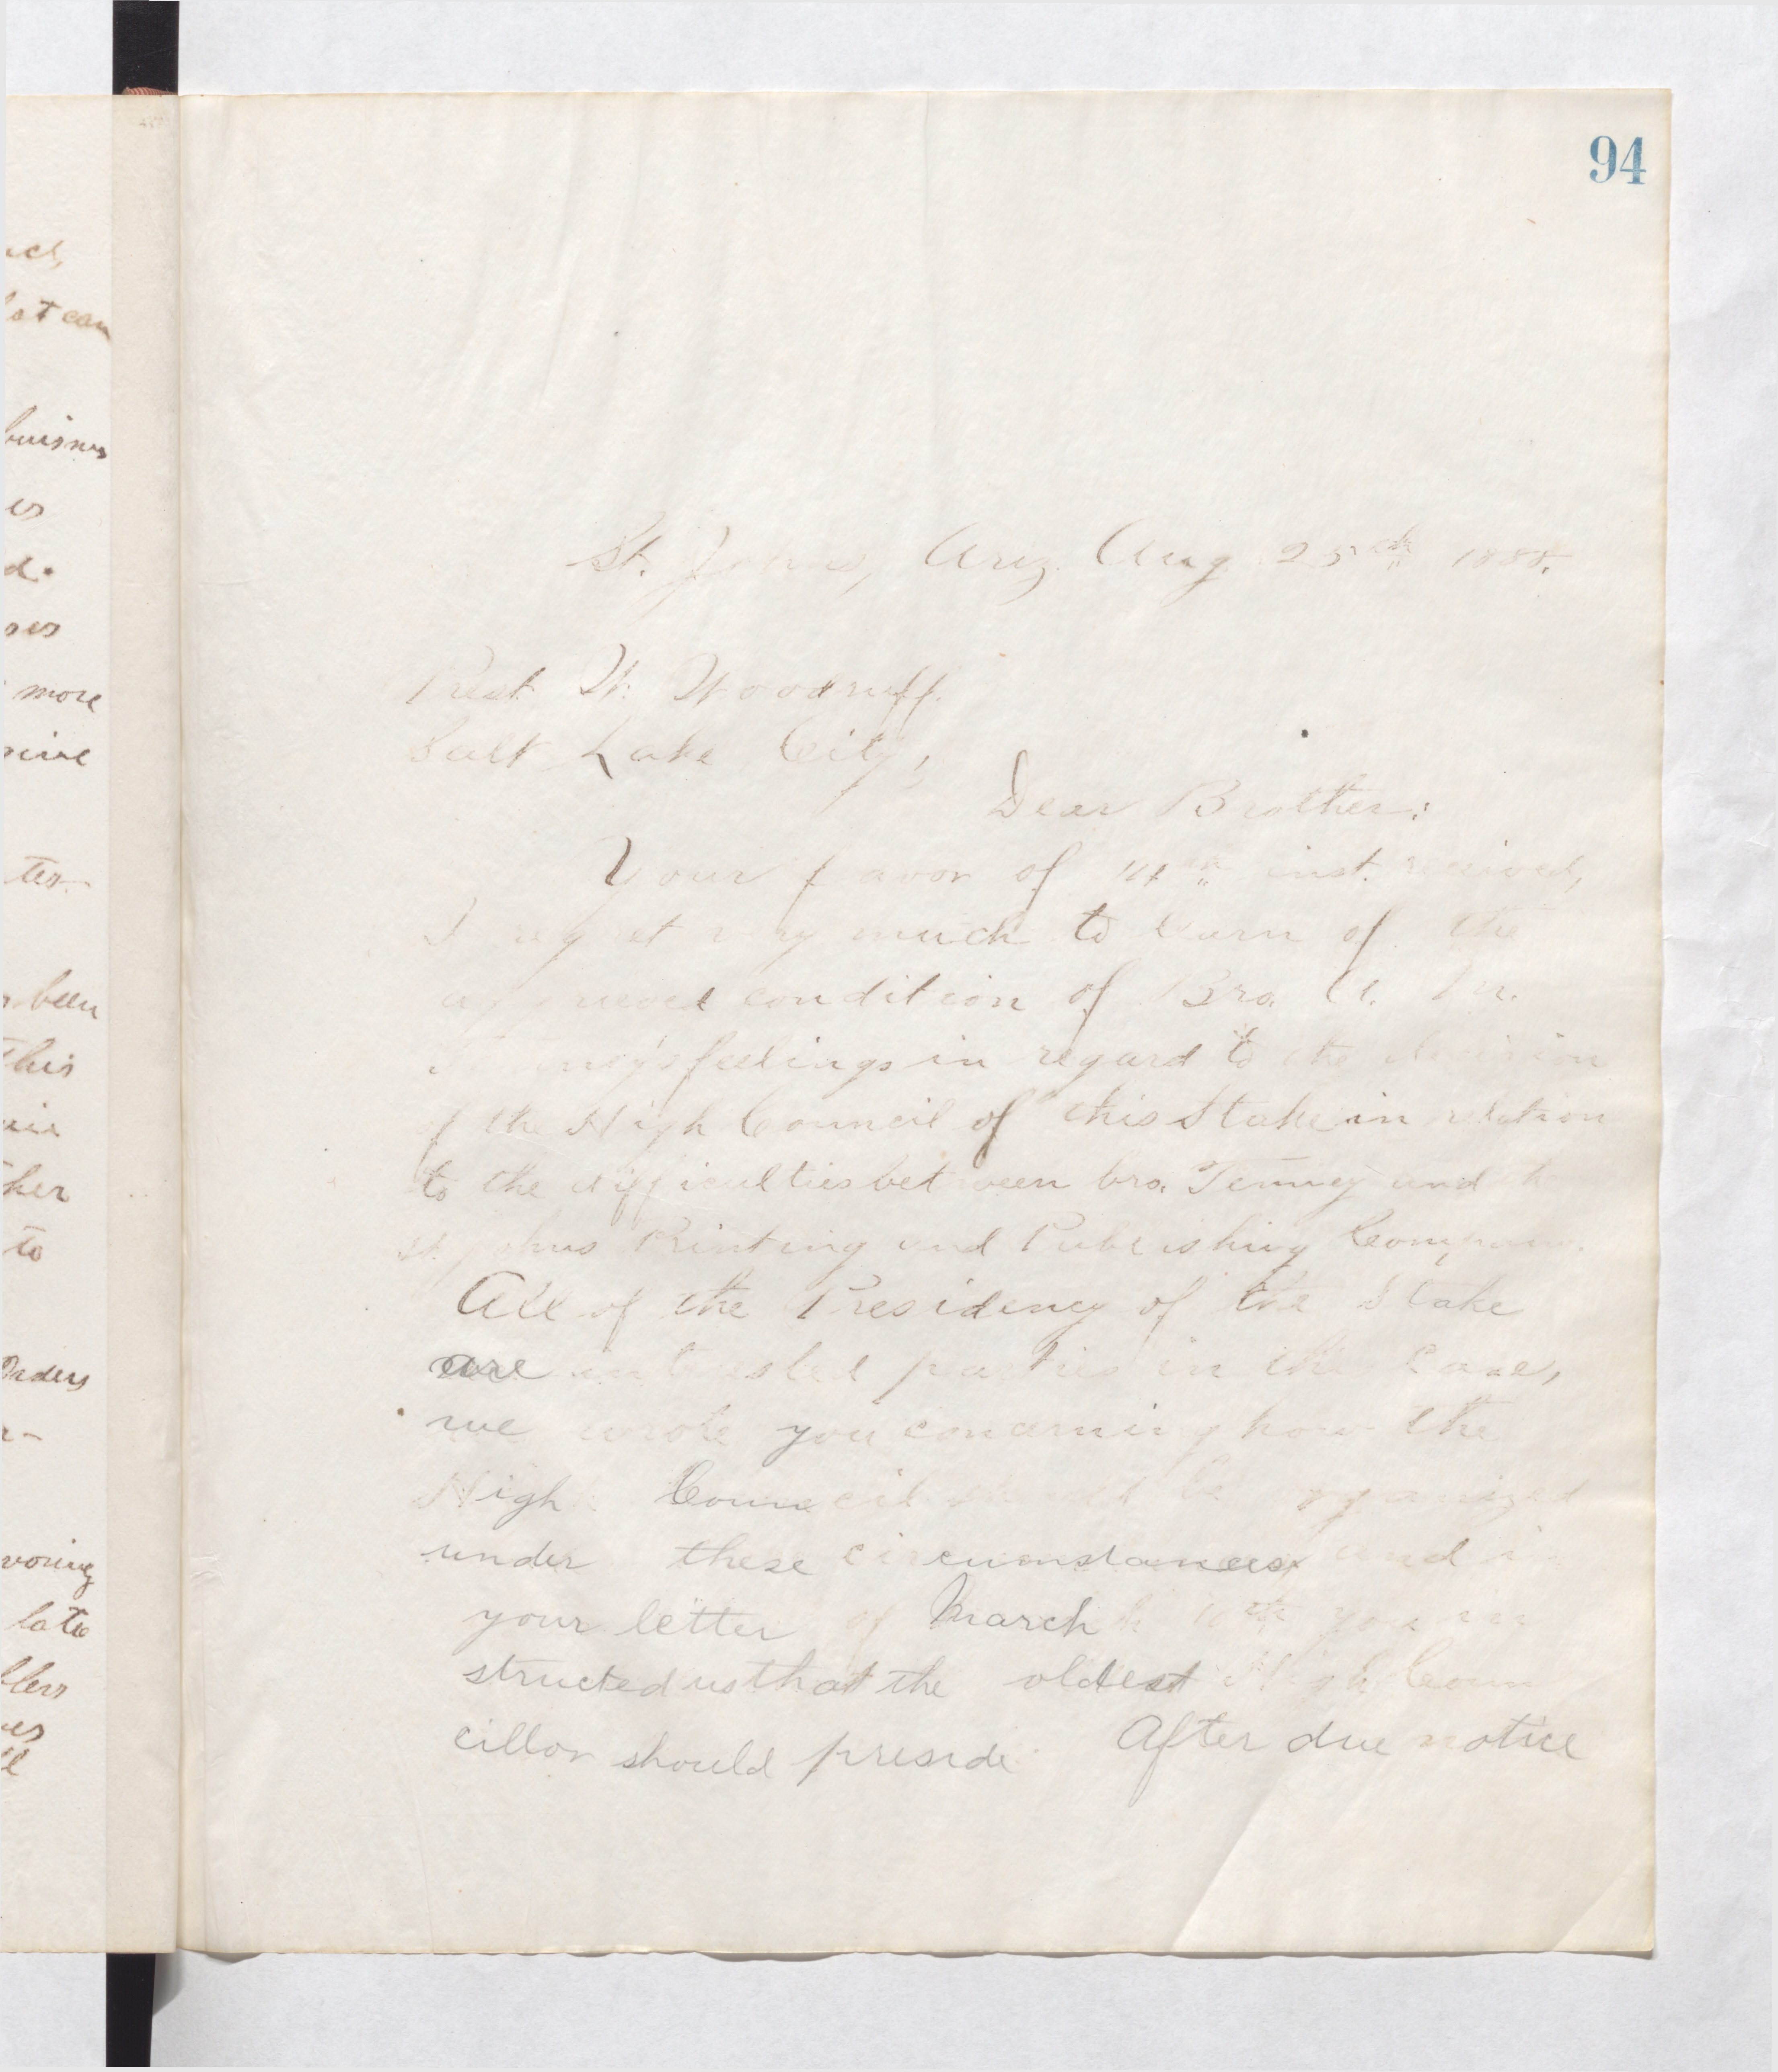 ich,
lot can
buisness
es
d.
ses
more
sive
ter.
been
this
her
to
Orders
n-
voring
late
llers
94
St. Johns, Ariz. Aug 25th 1888.
Prest W. Woodruff.
Salt Lake City,
Dear Brother:
Your favor of 14th inst. received,
I regret very much to learn of the
aggrieved condition of Bro. A. M.
Tenney's feelings in regard to the decision
of the High Council of this Stake in relation
to the difficulties between bro. Tenney and the
St. Johns Printing and Publishing Company.
All of the Presidency of the Stake
are interested parties in the case,
we wrote you concerning how the
High Council should be organized
under these circumstances and in
your letter of March 10th you in
structed us that the oldest High Coun
cillor should preside. After due notice